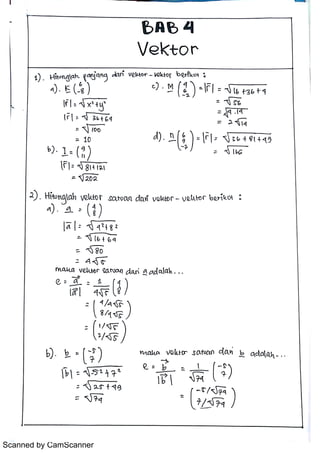 BAB 4
Vektor
1). Hitunglah panjang dari vektor-vektor berikut :
a). E (6 -8)
|r̄| = √x²+y²
|r̄| = √36+64
= √100
= 10
b). I = (9 11)
|r̄| = √81+121
= √202
c). M (4 6 -2) = |r̄| = √16+36+4
= √56
= √4.14
= 2√14
d). n (6 9 -7) = |r̄| = √36+81+49
= √166
2). Hitunglah vektor satuan dari vektor-vektor berikut :
a). a = (4 8)
|a| = √4²+8²
= √16+64
= √80
= 4√5
maka vektor satuan dari a adalah...
e = a/|a| = 1/4√5 (4 8)
= (4/4√5 8/4√5)
= (1/√5 2/√5)
b). b = (-5 7)
|b| = √5²+7²
= √25+49
= √74
maka vektor satuan dari b adalah...
e = b/|b| = 1/√74 (-5 7)
= (-5/√74 7/√74)
Scanned by CamScanner